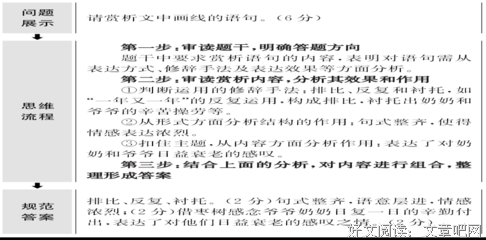 问题
展示
请赏析文中画线的语句。(6 分)
思维
流程
第一步:审读题干,明确答题方向
题干中要求赏析语句的内容,表明对语句需从
表达方式、修辞手法及表达效果等方面分析。
第二步:审读赏析内容,分析其效果和作用
①判断运用的修辞手法:排比、反复和衬托,如
“一年又一年”的反复运用,构成排比,衬托出奶奶和
爷爷的辛苦操劳等。
②从形式方面分析结构的作用:句式整齐,使得
情感表达浓烈。
③扣住主题,从内容方面分析作用:表达了对奶
奶和爷爷日益衰老的感叹。
第三步:结合上面的分析,对内容进行组合,整
理形成答案
规范
答案
排比、反复、衬托。(2 分)句式整齐,语意层进,情感
浓烈;(2 分)借枣树感念爷爷奶奶日复一日的辛勤付
出,表达了对他们日益衰老的感叹之情。(2 分)
好文阅读:文章吧网